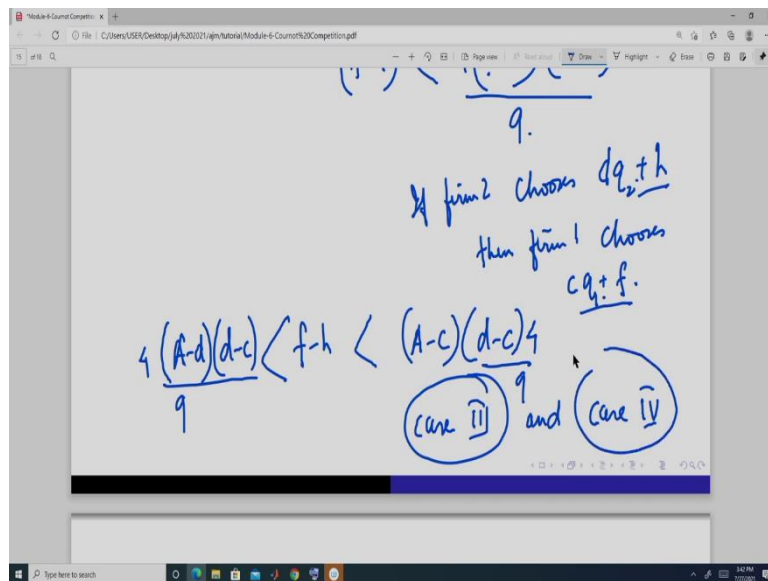 Module-6-Cournot Competitio x +
File | C:/Users/USER/Desktop/july%202021/ajm/tutorial/Module-6-Cournot%20Competition.pdf
15 of 18 Page view Read aloud Draw Highlight Erase
9.
If firm 2 chooses dq₂+h
then firm 1 chooses
cq₁+f.
4(A-d)(d-c)/9 < f-h < (A-c)(d-c)4/9
case II and case IV
Type here to search
3:42 PM
7/27/2021